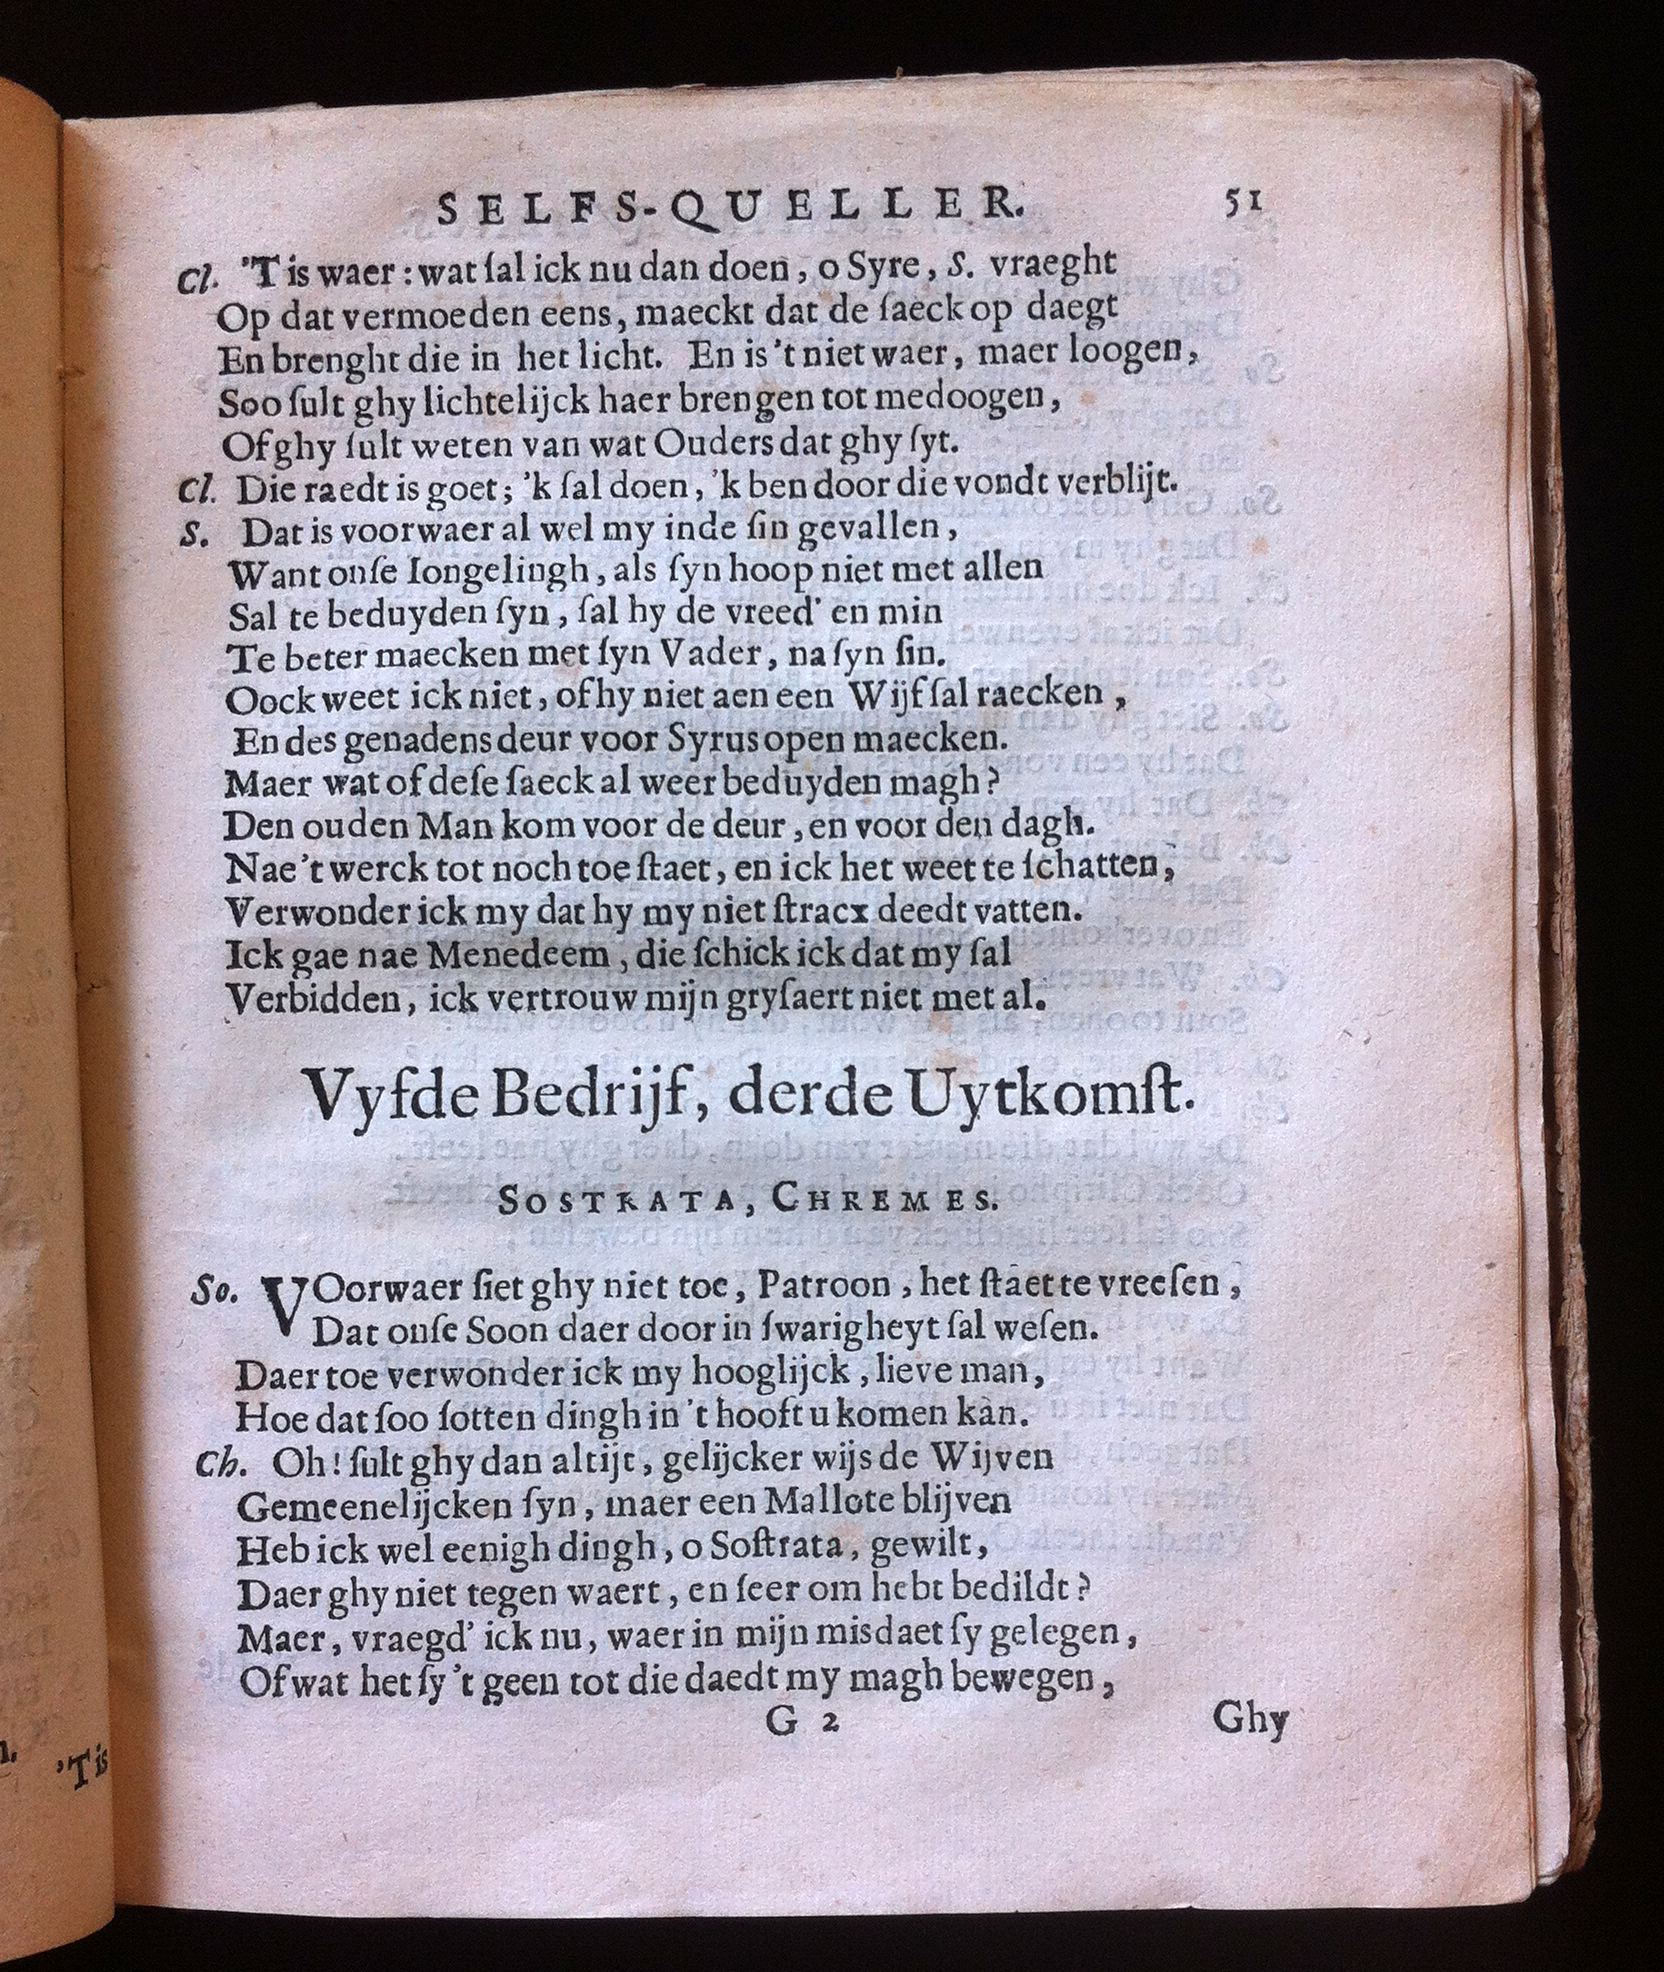 SELFS-QUELLER. 51
Cl. 'T is waer: wat ſal ick nu dan doen, o Syre, S. vraeght
Op dat vermoeden eens, maeckt dat de ſaeck op daegt
En brenght die in het licht. En is 't niet waer, maer loogen,
Soo ſult ghy lichtelijck haer brengen tot medoogen,
Of ghy ſult weten van wat Ouders dat ghy ſyt.
Cl. Die raedt is goet; 'k ſal doen, 'k ben door die vondt verblijt.
S. Dat is voorwaer al wel my inde ſin gevallen,
Want onſe Iongelingh, als ſyn hoop niet met allen
Sal te beduyden ſyn, ſal hy de vreed' en min
Te beter maecken met ſyn Vader, na ſyn ſin.
Oock weet ick niet, of hy niet aen een Wijf ſal raecken,
En des genadens deur voor Syrus open maecken.
Maer wat of deſe ſaeck al weer beduyden magh?
Den ouden Man kom voor de deur, en voor den dagh.
Nae 't werck tot noch toe ſtaet, en ick het weet te ſchatten,
Verwonder ick my dat hy my niet ſtracx deedt vatten.
Ick gae nae Menedeem, die ſchick ick dat my ſal
Verbidden, ick vertrouw mijn gryſaert niet met al.
Vyfde Bedrijf, derde Uytkomſt.
SOSTRATA, CHREMES.
So. VOorwaer ſiet ghy niet toe, Patroon, het ſtaet te vreeſen,
Dat onſe Soon daer door in ſwarigheyt ſal weſen.
Daer toe verwonder ick my hooglijck, lieve man,
Hoe dat ſoo ſotten dingh in 't hooft u komen kan.
Ch. Oh! ſult ghy dan altijt, gelijcker wijs de Wijven
Gemeenelijcken ſyn, maer een Mallote blijven
Heb ick wel eenigh dingh, o Soſtrata, gewilt,
Daer ghy niet tegen waert, en ſeer om hebt bedildt?
Maer, vraegd' ick nu, waer in mijn misdaet ſy gelegen,
Of wat het ſy 't geen tot die daedt my magh bewegen,
G 2 Ghy
'T is